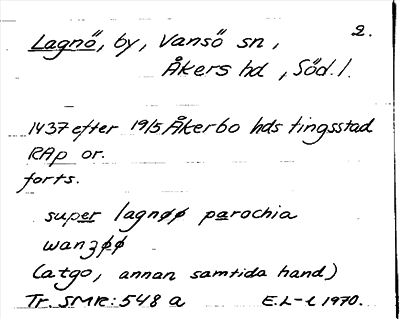 2.
Lagnö, by, Vansö sn,
Åkers hd, Söd. l.
1437 efter 19/5 Åkerbo hds tingsstad
RAp or.
forts.
super lagnøø parochia
wanzøø
(atgo, annan samtida hand)
Tr. SMR: 548 a E.L-l 1970.